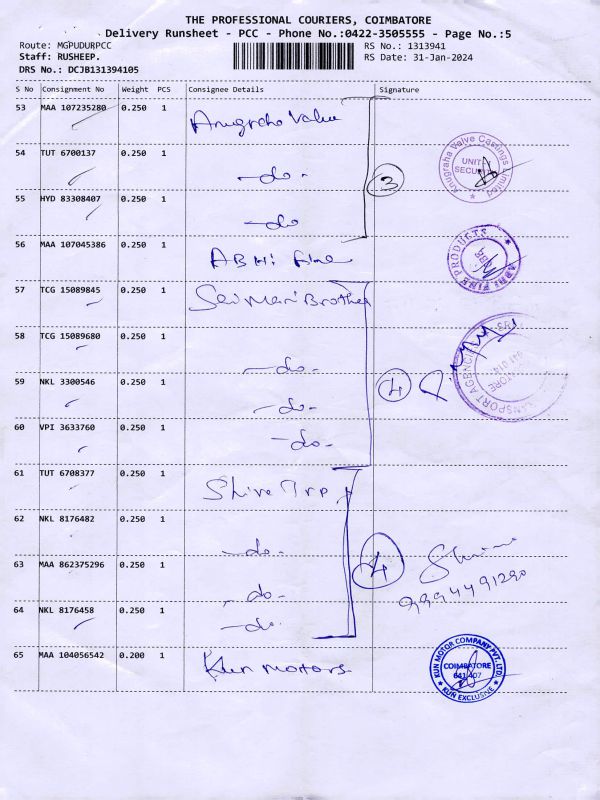 THE PROFESSIONAL COURIERS, COIMBATORE
Delivery Runsheet - PCC - Phone No.:0422-3505555 - Page No.:5
Route: MGPUDURPCC RS No.: 1313941
Staff: RUSHEEP. RS Date: 31-Jan-2024
DRS No.: DCJB131394105
S No Consignment No Weight PCS Consignee Details Signature
53 MAA 107235280 0.250 1 Anugraha Valve
54 TUT 6700137 0.250 1 -do-
3
Anugraha Valve Castings Limited
UNIT
SECURITY
55 HYD 83308407 0.250 1 -do
56 MAA 107045386 0.250 1 ABHI Fine
ABHI FINE PRODUCTS
CBE
57 TCG 15089845 0.250 1 Sai Mari Brother
58 TCG 15089680 0.250 1 -do-
59 NKL 3300546 0.250 1 -do-
4
TRANSPORT AGENCIES
60 VPI 3633760 0.250 1 -do-
61 TUT 6708377 0.250 1 Shiva Trp
62 NKL 8176482 0.250 1 -do-
63 MAA 862375296 0.250 1 -do-
4
9994491290
64 NKL 8176458 0.250 1 -do-
65 MAA 104056542 0.200 1 Kun Motors.
KUN MOTOR COMPANY PVT. LTD.
COIMBATORE
641 407
KUN EXCLUSIVE